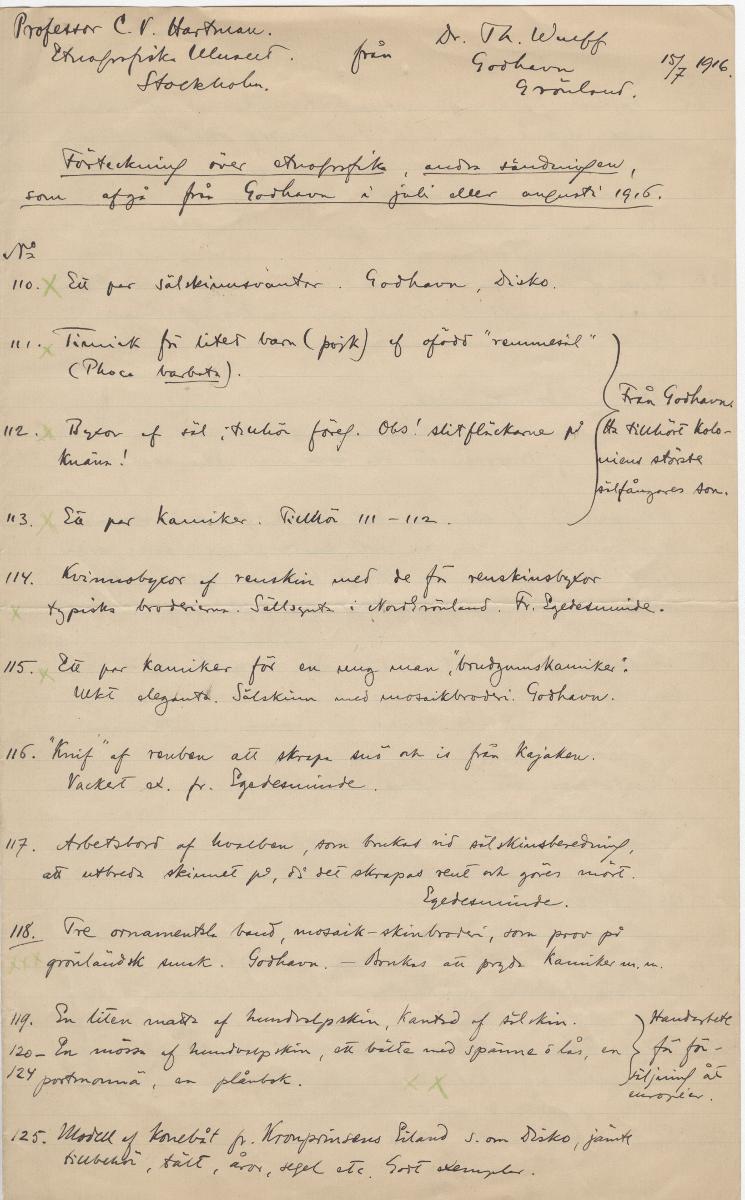 Professor C. V. Hartman.
Etnografiska Museet.
Stockholm.
från
Dr. Th. Wulff
Godhavn
Grönland.
15/7 1916.
Förteckning över etnografika, andra sändningen,
som afgå från Godhavn i juli eller augusti 1916.
No
110. X Ett par sälskinnsvantar. Godhavn, Disko.
111. X Timiak för litet barn (pojk) af ofödd "remmesäl"
(Phoca barbata).
112. X Byxor af säl, tillhör föreg. Obs! slitfläckarne på
knäna!
113. X Ett par kamiker. Tillhör 111-112.
Från Godhavn.
Ha tillhört kolo-
niens störste
sälfångares son.
114. Kvinnobyxor af renskin med de för renskinsbyxor
X typiska broderierna. Sällsynta i NordGrönland. Fr. Egedesminde.
115. X Ett par kamiker för en ung man, "brudgumskamiker".
Ulkt eleganta. Sälskinn med mosaikbroderi. Godhavn.
116. "Knif" af renben att skrapa snö och is från kajaken.
Vackert ex. fr. Egedesminde.
117. Arbetsbord af hvalben, som brukas vid sälskinsberedning,
att utbreda skinnet på, då det skrapas rent och göres mört.
Egedesminde.
118. Tre ornamentala band, mosaik-skinbroderi, som prov på
xxx grönländsk smak. Godhavn. — Brukas att pryda kamiker m.m.
119. En liten matta af hundvalpskin, kantad af sälskin.
120- En mössa af hundvalpskin, ett bälte med spänne o lås, en
124 portmonnä, en plånbok. x X
Handarbete
för för-
säljning åt
europeer.
125. Modell af konebåt fr. Kronprinsens Eiland s. om Disko, jämte
tillbehör, tält, åror, segel etc. Godt exemplar.